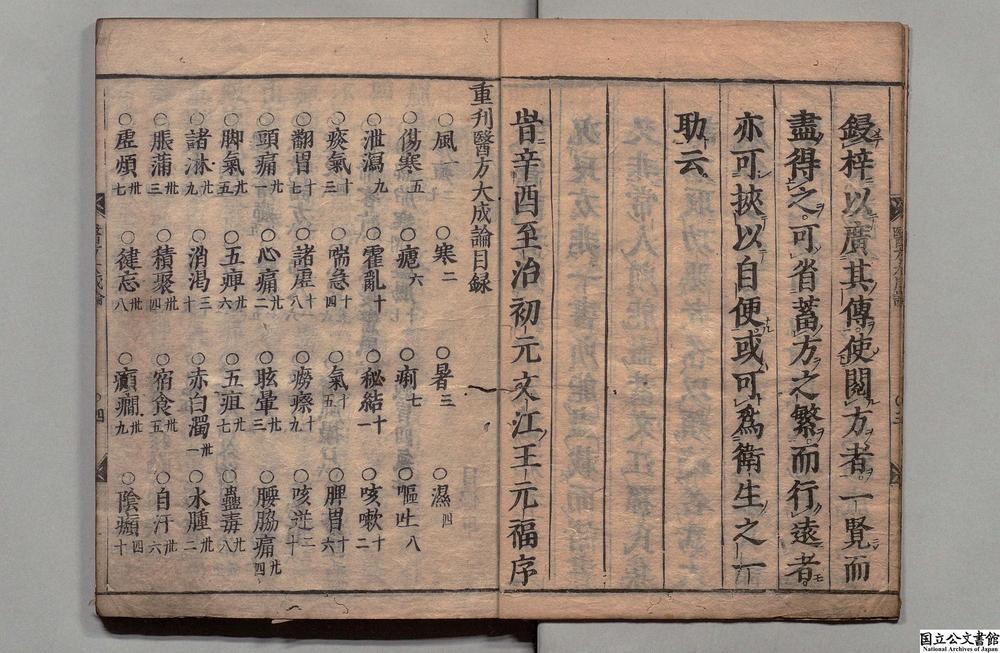 鋟梓以廣其傳使閱方者一覽而
盡得之可省蓄方之繁而行遠者
亦可挾以自便或可爲衛生之一
助云
旹辛酉至治初元文江王元福序
重刊醫方大成論目録
○風一 ○寒二 ○暑三 ○濕四
○傷寒五 ○瘧六 ○痢七 ○嘔吐八
○泄瀉九 ○霍亂十 ○秘結十一 ○咳嗽十二
○痰氣十三 ○喘急十四 ○氣十五 ○脾胃十六
○翻胃十七 ○諸虛十八 ○癆瘵十九 ○咳逆二十
○頭痛廿一 ○心痛廿二 ○眩暈廿三 ○腰脇痛廿四
○脚氣廿五 ○五痺廿六 ○五疸廿七 ○蠱毒廿八
○諸淋廿九 ○消渇三十 ○赤白濁卅一 ○水腫卅二
○脹滿卅三 ○積聚卅四 ○宿食卅五 ○自汗卅六
○虛煩卅七 ○健忘卅八 ○癲癇卅九 ○陰㿗四十
国立公文書館
National Archives of Japan